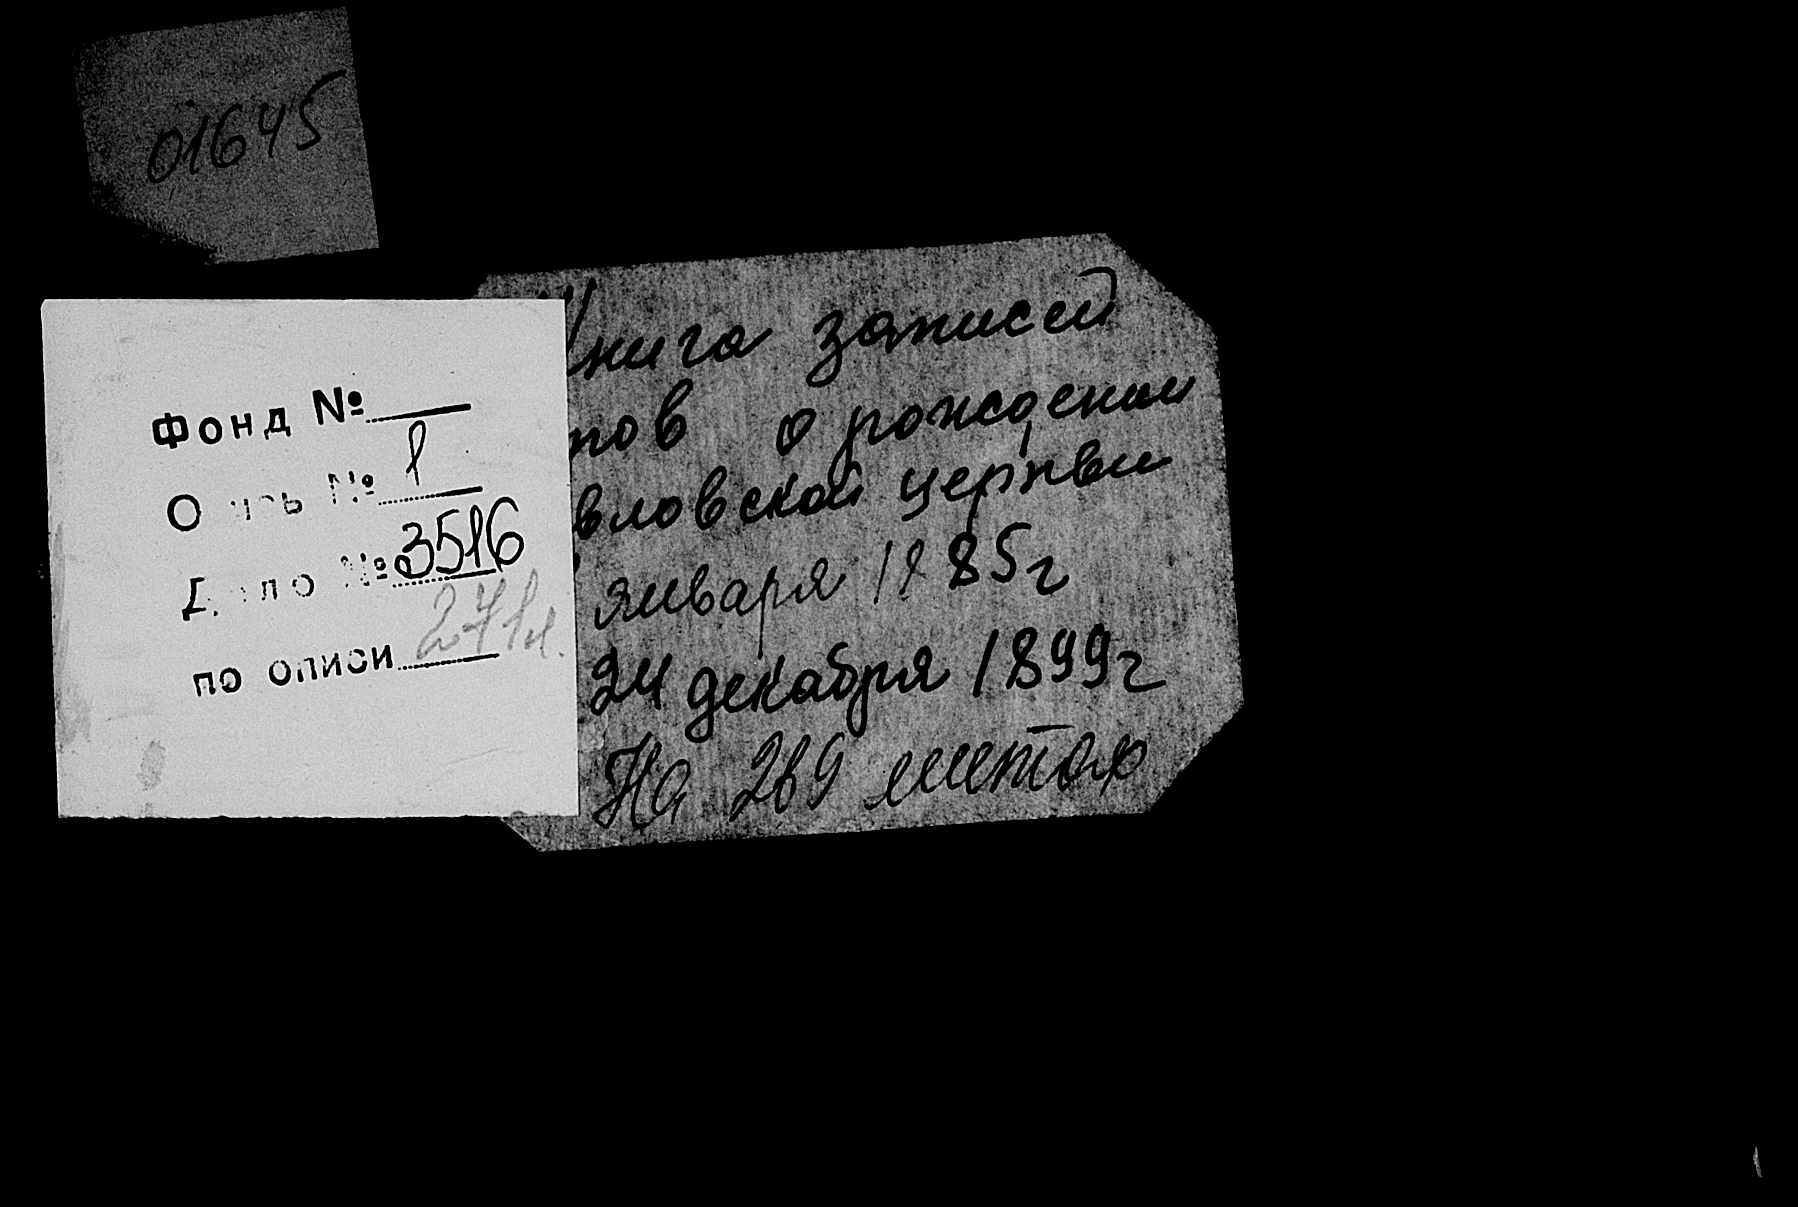 01645
Фонд №
О пись № 1
Дело № 3516
по описи 271л.
Книга записей
тов о рождении
вловской церкви
января 1885г
24 декабря 1899г
На 269 листах